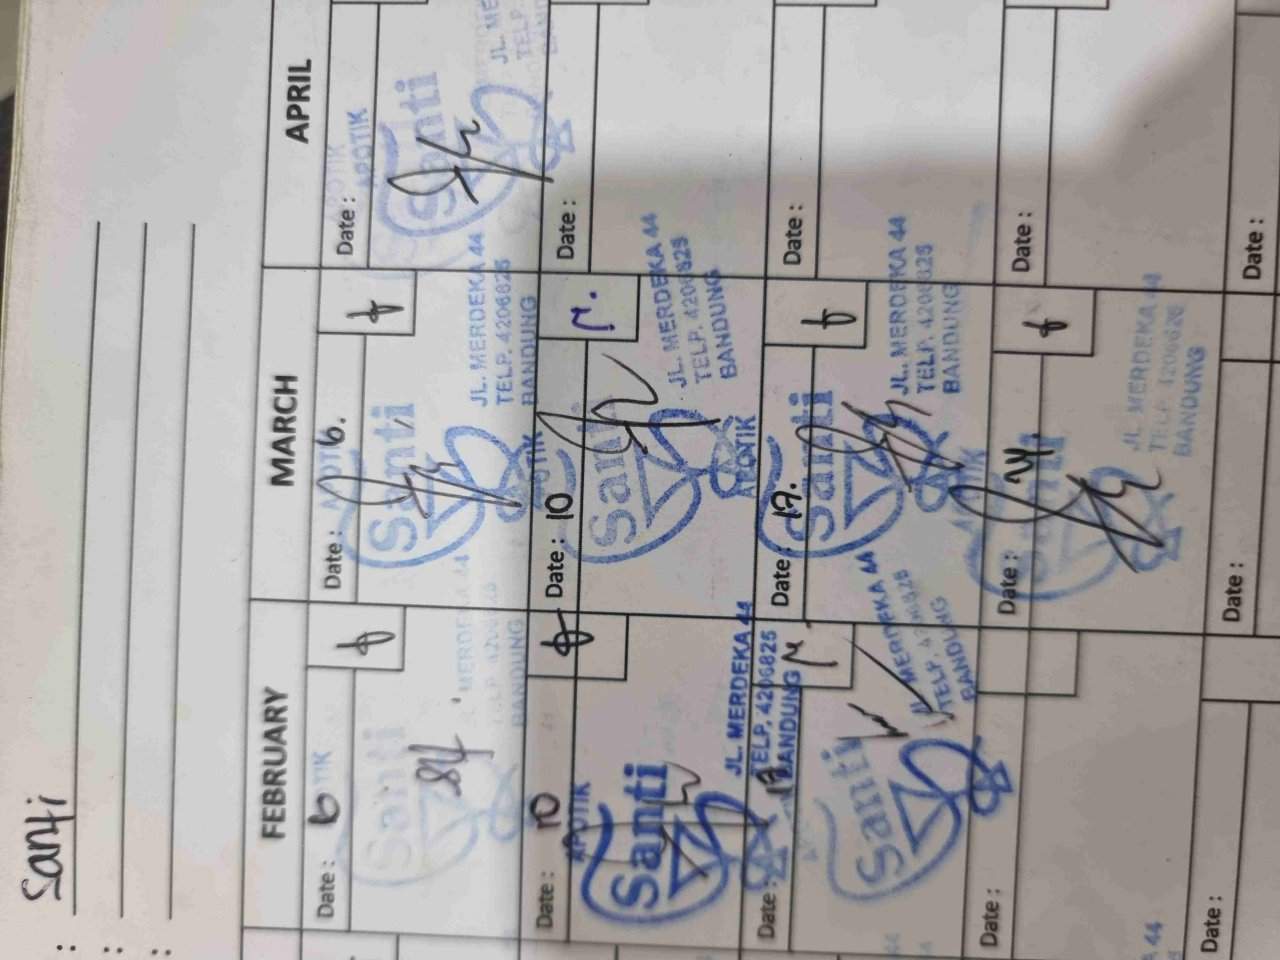 : Santi
:
:
FEBRUARY
MARCH
APRIL
Date : 6
TIK
Santi
MERDEKA 44
TELP. 4206825
BANDUNG
Date : 6.
APOTIK
Santi
JL. MERDEKA 44
TELP. 4206825
BANDUNG
Date :
APOTIK
APOTIK
Santi
JL. ME
TELP
BAND
Date : 10
APOTIK
Santi
JL. MERDEKA 44
TELP. 4206825
BANDUNG
Date : 10
APOTIK
Santi
JL. MERDEKA 44
TELP. 4206825
BANDUNG
Date :
Date : 17
Santi
JL. MERDEKA 44
TELP. 4206825
BANDUNG
Date : 17.
APOTIK
Santi
JL. MERDEKA 44
TELP. 4206825
BANDUNG
Date :
Date :
Date : 24
APOTIK
Santi
JL. MERDEKA 44
TELP. 4206825
BANDUNG
Date :
Date :
Date :
Date :
44